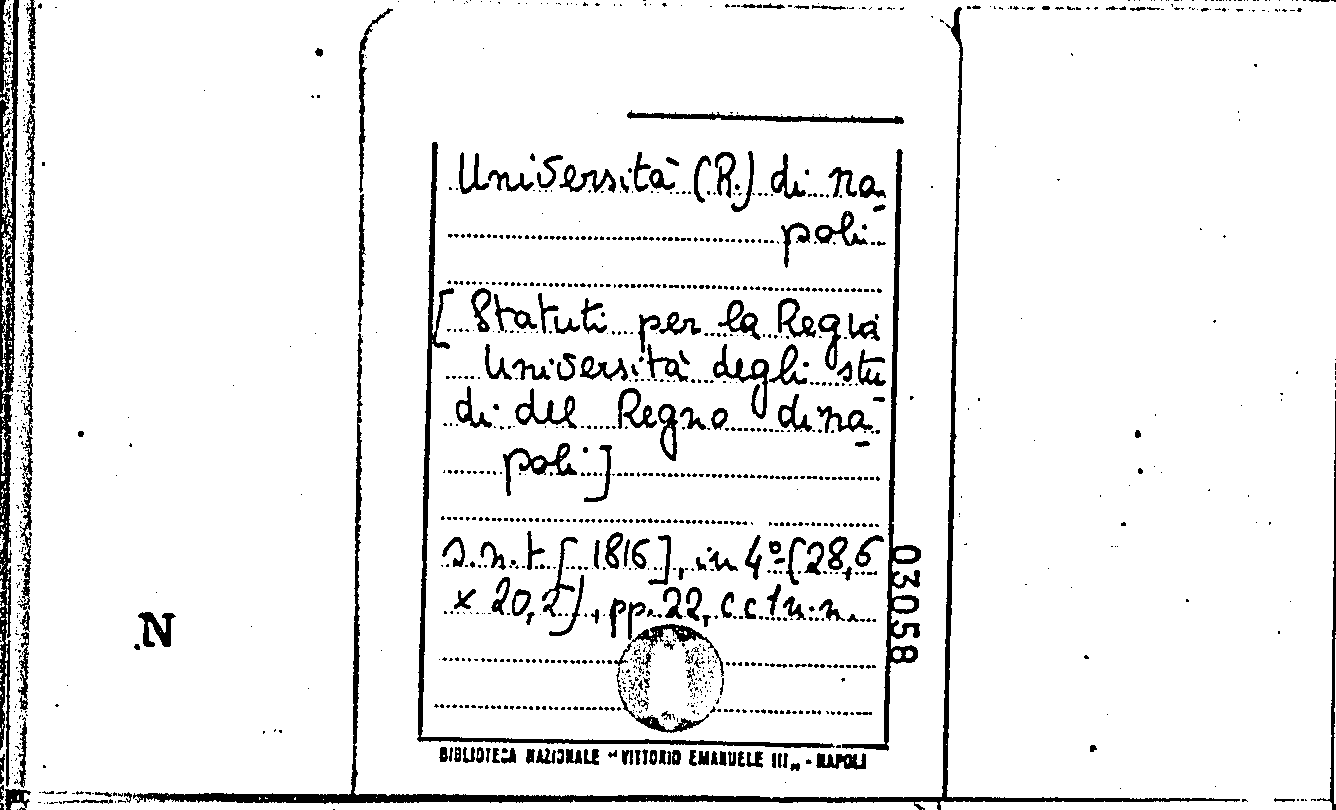 Università (R.) di Na-
poli
[Statuti per la Regia
Università degli stu-
di del Regno di Na-
poli]
s.n.t. [1816], in 4º (28,6
x 20,2), pp. 22, c c 1 n.n.
03058
N
BIBLIOTECA NAZIONALE "VITTORIO EMANUELE III„ - NAPOLI